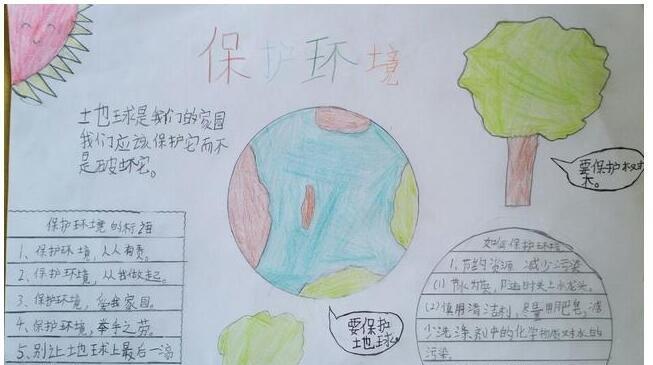 保护环境
地球是我们的家园
我们应该保护它而不
是破坏它。
要保护树
木。
保护环境的标语
1、保护环境,人人有责。
2、保护环境,从我做起。
3、保护环境,爱我家园。
4、保护环境,举手之劳。
5、别让地球上最后一滴
要保护
地球。
如何保护环境
1、节约资源 减少污染
(1)节水为荣,随时关上水龙头。
(2)慎用清洁剂,尽量用肥皂,减
少洗涤剂中的化学物质对水的
污染。